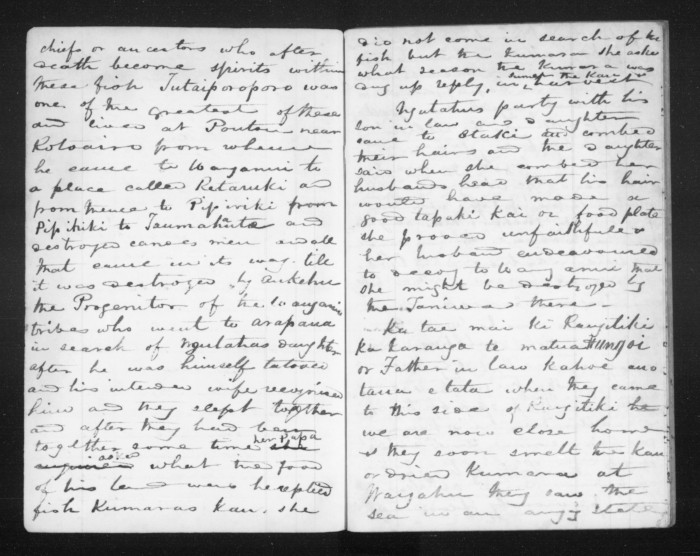 chiefs or ancestors who after
death become spirits within
these fish Tutaiporoporo was
one of the greatest of these
and lived at Poutou near
Rotoairo from whence
he came to Wanganui to
a place called Retaruki and
from thence to Pipiriki from
Pipiriki to Taumahaute and
destroyed canoes men and all
that came in its way till
it was destroyed by Aukehu
the Progenitor of the Wanganui
tribes who went to Arapaua
in search of Ngutahus daughter
after he was himself tatooed
and his intended wife recognised
him and they slept together
and after they had been
together some time her Papa
asked what the food
of his land were he replied
fish Kumaras Kau. she
did not come in search of the
fish but the Kumara she asked
what season the Kumara was
dug up reply, in harvest
Ngutahus party with his
son in law and daughter
came to Otaki combed
their hairs and the daughter
said when she combed her
husbands head that his hair
would have made a
good tapaki kai or food plate
she proved unfaithful &
her husband endeavoured
to decoy to Wanganui that
she might be destroyed by
the Taniwa there -
Ka tae mai ki Rangitiki
Ka Karanga te matua Hungoi
or Father in law
when they came
to this side of Rangitiki he
we are now close home
& they soon smelt the Kau
or dried Kumara at
they saw the
sea in an angry state